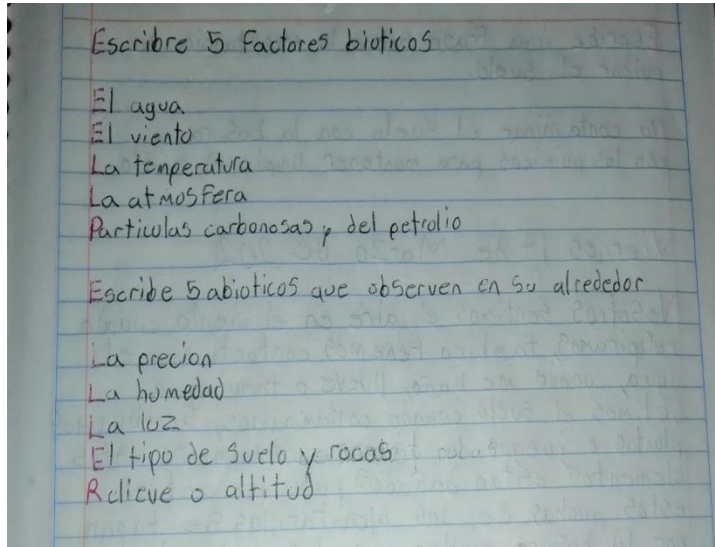 Escribre 5 factores bioticos
El agua
El viento
La temperatura
La atmosfera
Particulas carbonosas y del petrolio
Escribe 5 abioticos que observen en su alrededor
La precion
La humedad
La luz
El tipo de suelo y rocas
Relieve o altitud